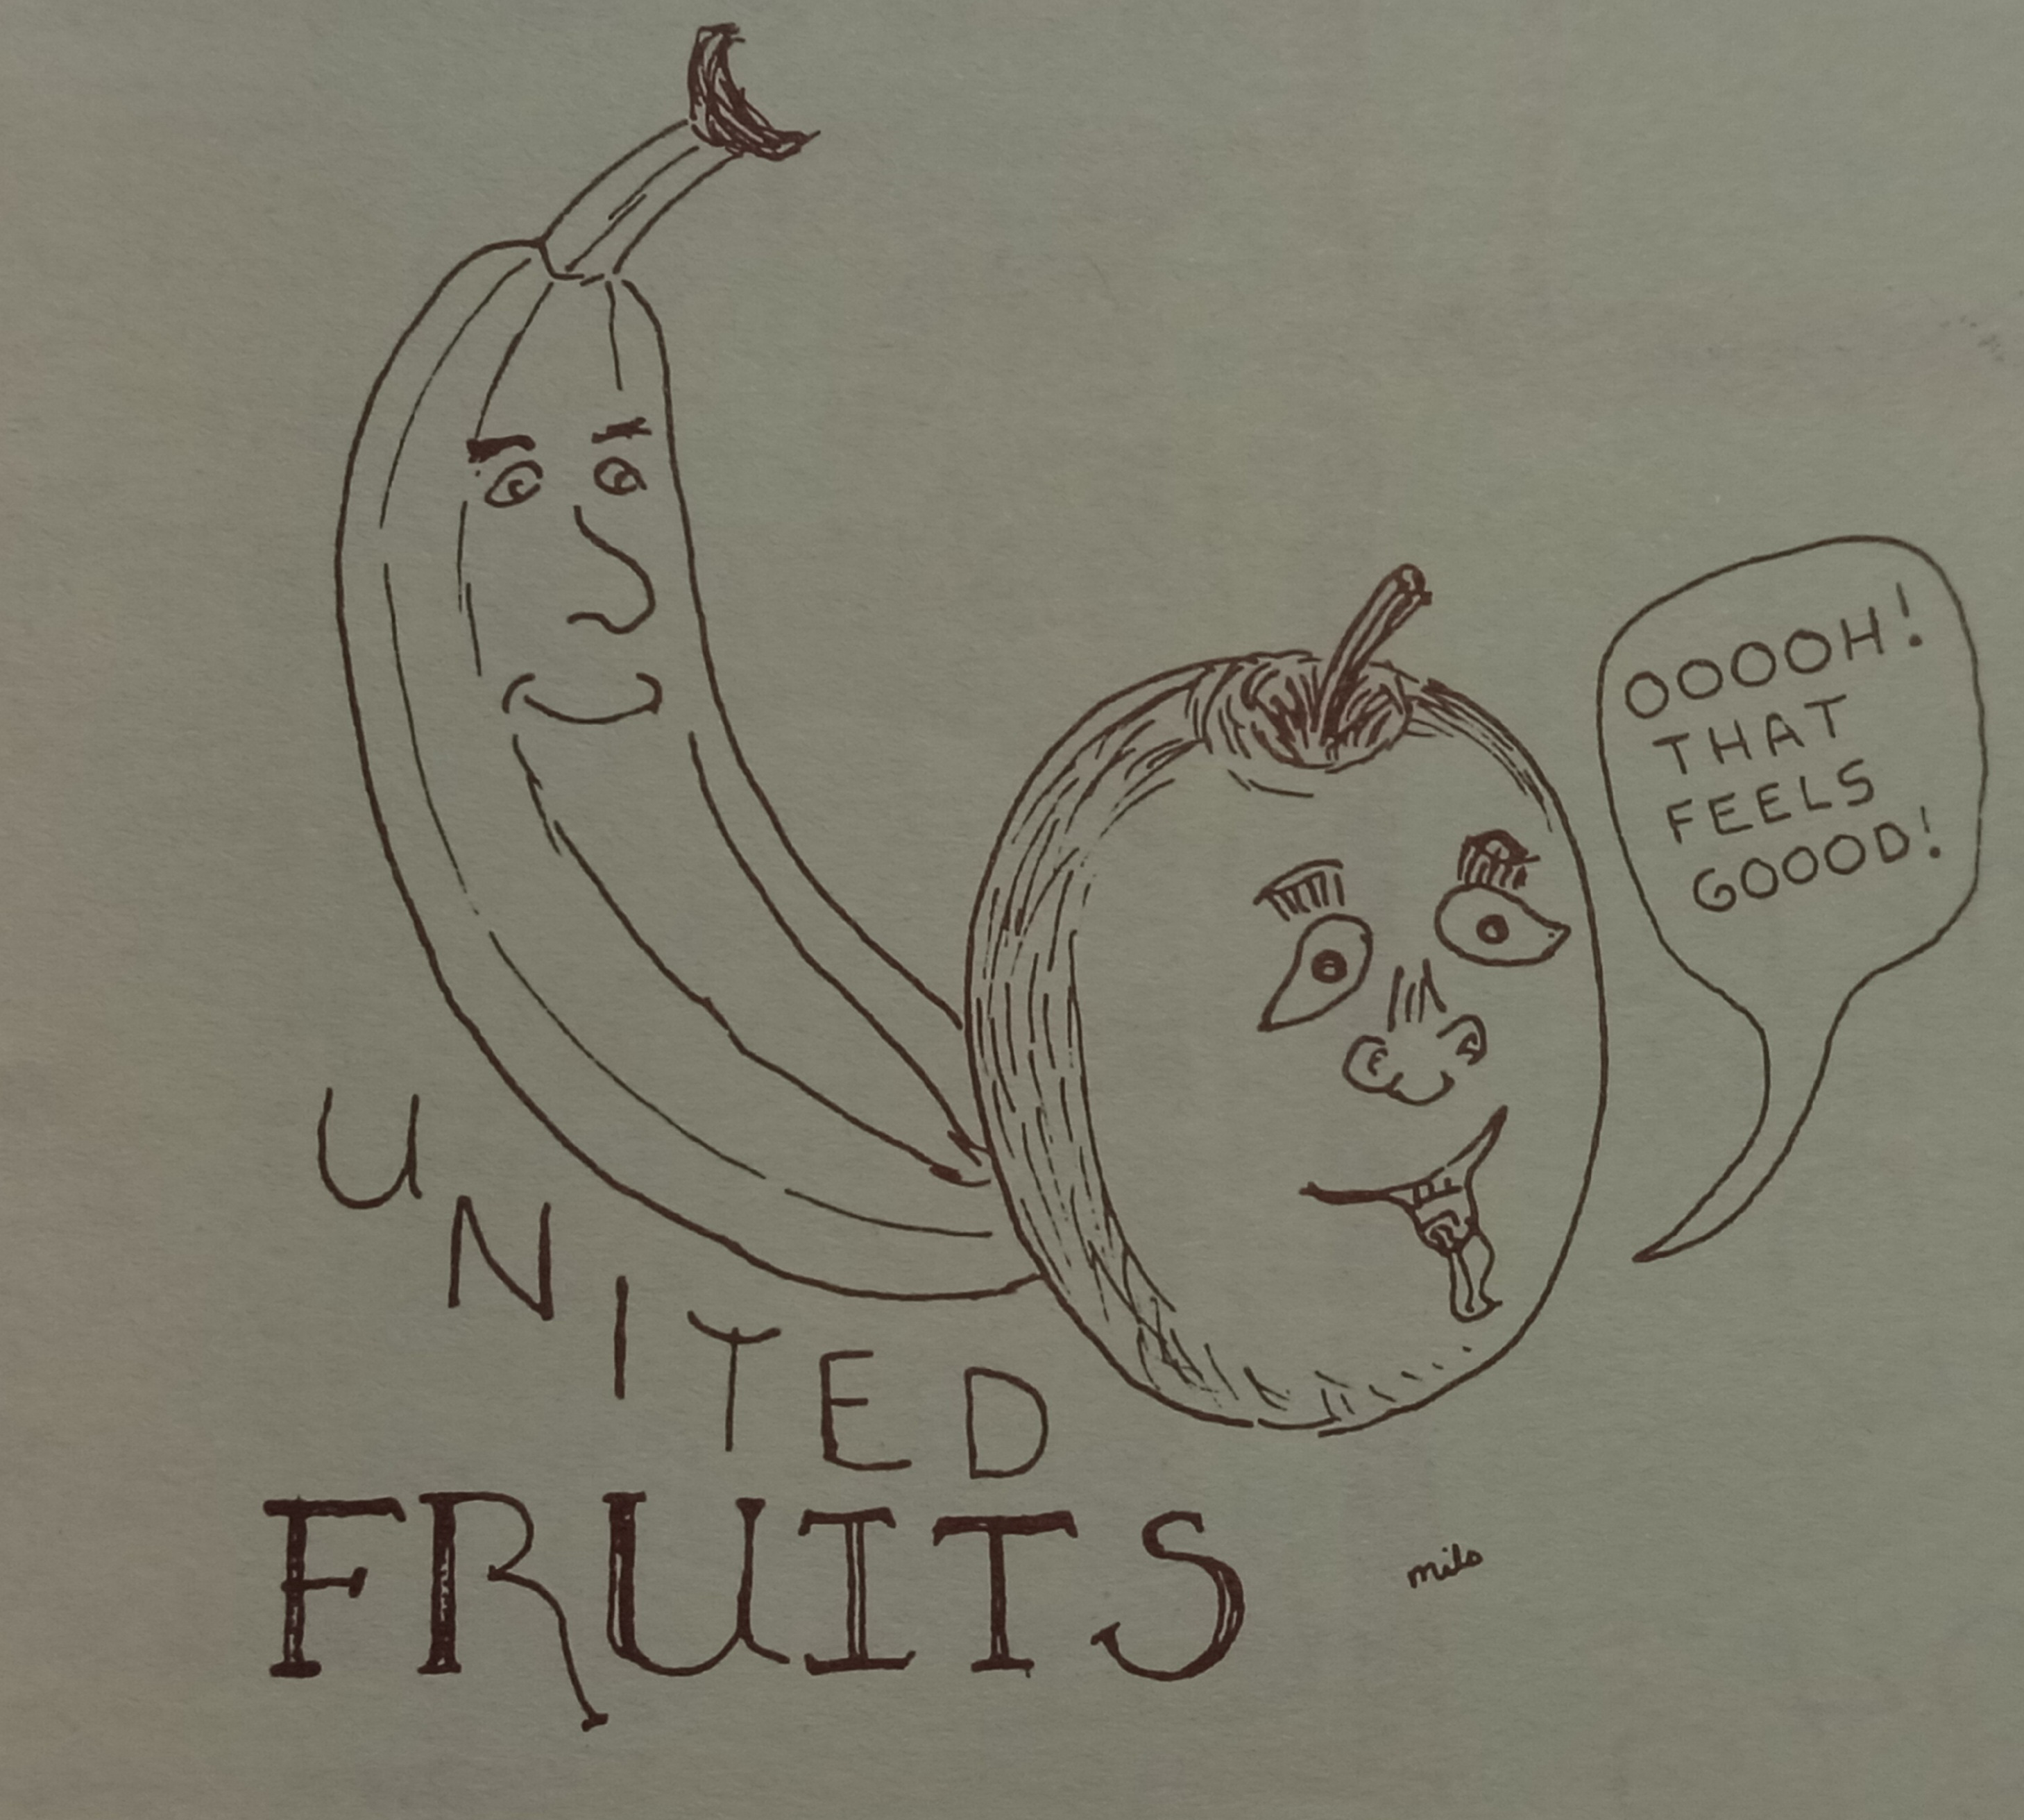 OOOOH!
THAT
FEELS
GOOOD!
UNITED
FRUITS
milo